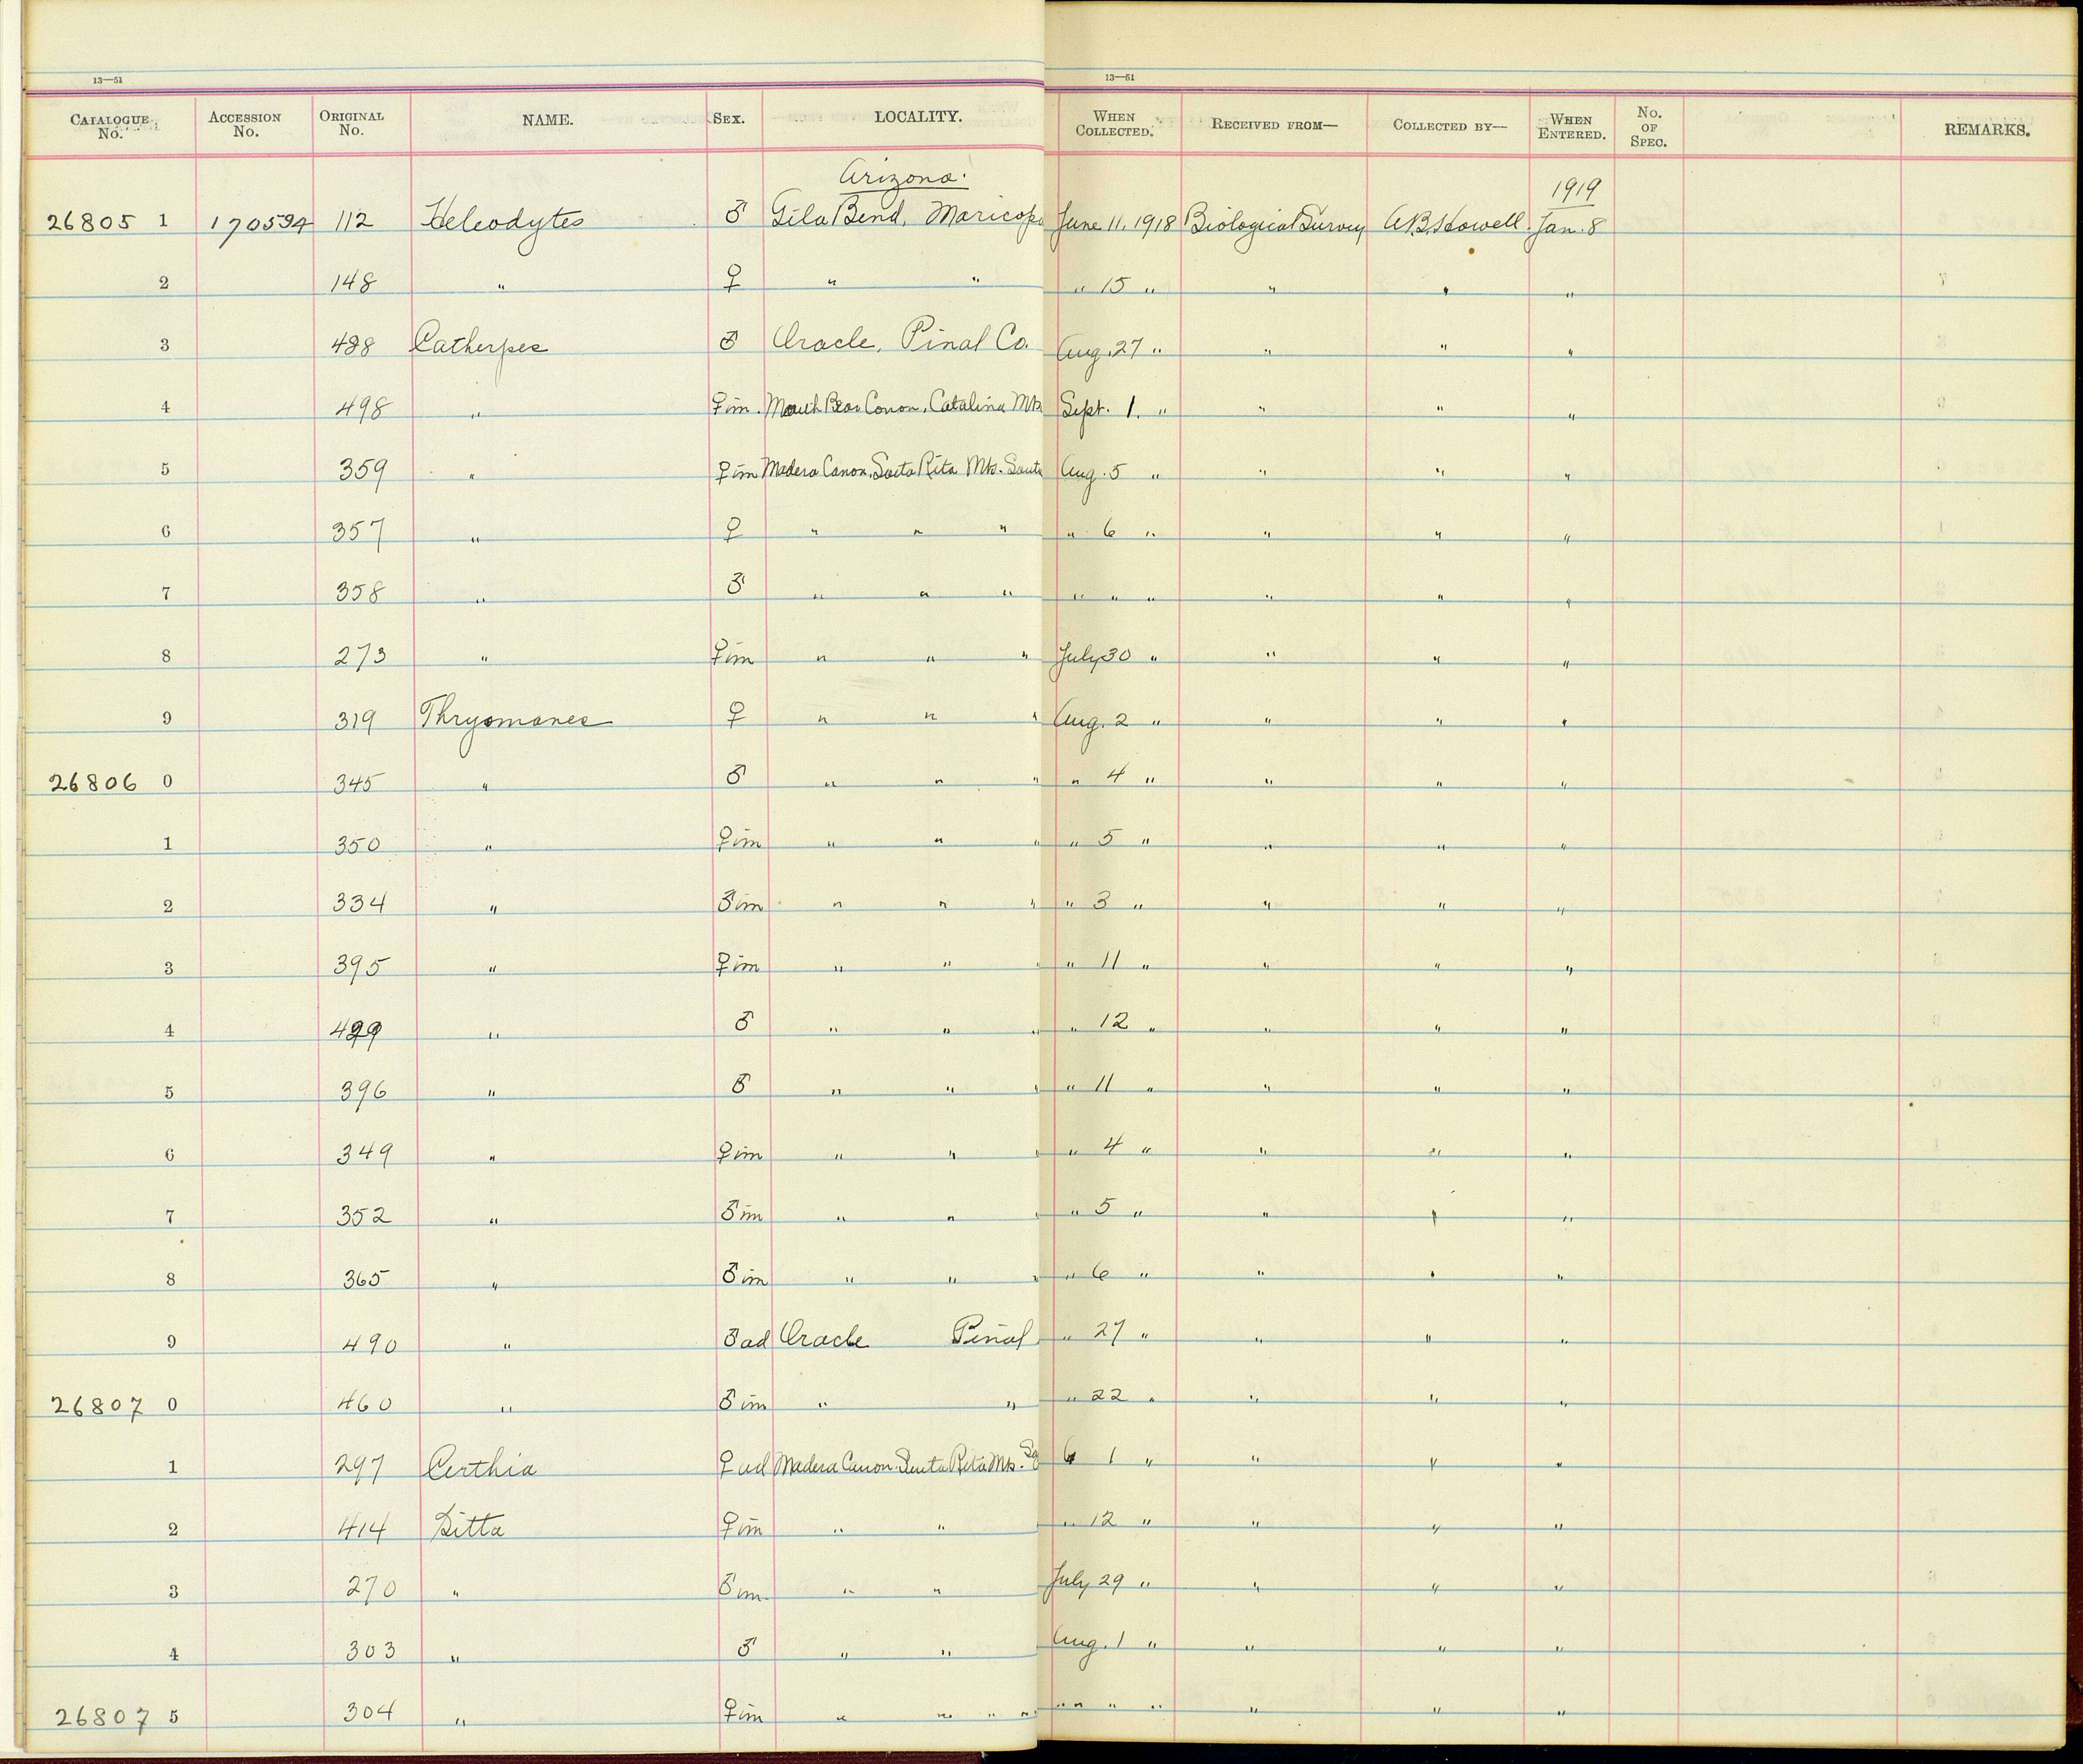 13—51 13—51
CATALOGUE No. ACCESSION No. ORIGINAL No. NAME. SEX. LOCALITY. WHEN COLLECTED. RECEIVED FROM— COLLECTED BY— WHEN ENTERED. No. OF SPEC. REMARKS.
Arizona. 1919
26805 1 170594 112 Heleodytes ♂ Gila Bend, Maricopa June 11, 1918 Biological Survey A.B. Howell Jan. 8
2 148 " ♀ " " " 15 " " " "
3 488 Catherpes ♂ Oracle, Pinal Co. Aug. 27 " " " "
4 498 " ♀ im. Mouth Bear Canon, Catalina Mts Sept. 1. " " " "
5 359 " ♀ im Madera Canon, Santa Rita Mts. Santa Aug. 5 " " " "
6 357 " ♀ " " " " 6 " " " "
7 358 " ♂ " " " " " " " " "
8 273 " ♀ im " " " July 30 " " " "
9 319 Thryomanes ♀ " " " Aug. 2 " " " "
26806 0 345 " ♂ " " " " 4 " " " "
1 350 " ♀ im " " " " 5 " " " "
2 334 " ♂ im " " " " 3 " " " "
3 395 " ♀ im " " " " 11 " " " "
4 " ♂ " " " " 12 " " " "
5 396 " ♂ " " " " 11 " " " "
6 349 " ♀ im " " " " 4 " " " "
7 352 " ♂ im " " " " 5 " " " "
8 365 " ♂ im " " " " 6 " " " "
9 490 " ♂ ad Oracle Pinal " 27 " " " "
26807 0 460 " ♂ im " " " 22 " " " "
1 297 Certhia ♀ ad Madera Canon. Santa Rita Mts. 1 " " " "
2 414 Sitta ♀ im " " " 12 " " " "
3 270 " ♂ im. " " July 29 " " " "
4 303 " ♂ " " Aug. 1 " " " "
26807 5 304 " ♀ im " " " " " " " " " " "